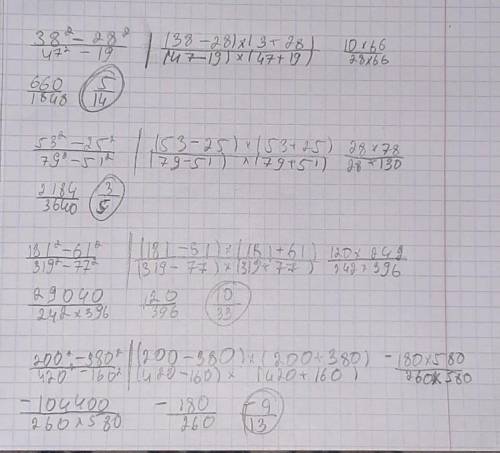 38² - 28² / 47² - 19 | (38 - 28) × (3 + 28) / (47 - 19) × (47 + 19) 10 × 66 / 28 × 66
660 / 1848 5 / 14
53² - 25² / 79² - 51² | (53 - 25) × (53 + 25) / (79 - 51) × (79 + 51) 28 × 78 / 28 × 130
2184 / 3640 3 / 5
181² - 61² / 319² - 77² | (181 - 61) × (181 + 61) / (319 - 77) × (319 + 77) 120 × 242 / 242 × 396
29040 / 242 × 396 120 / 396 10 / 33
200² - 380² / 420² - 160² | (200 - 380) × (200 + 380) / (420 - 160) × (420 + 160) -180 × 580 / 260 × 580
-104400 / 260 × 580 -180 / 260 -9 / 13